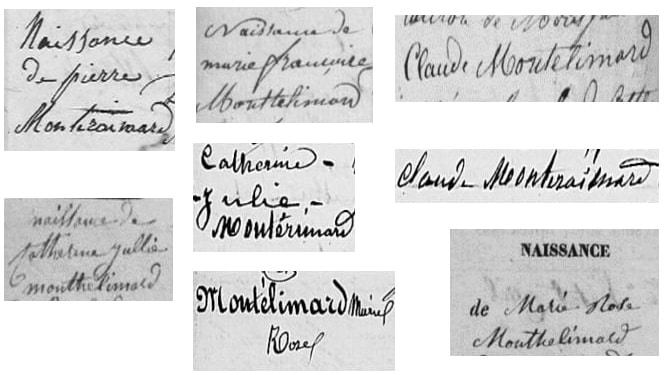 Naissance
de pierre
Montraimard
naissance de
catherine jullie
monthelimard
Naissance de
marie françoise
Monthelimard
Catherine -
- Julie -
Montérimard
Montélimard Marie
Rose
Claude Montelimard
Claude Montraimard
NAISSANCE
de Marie Rose
Monthelimard